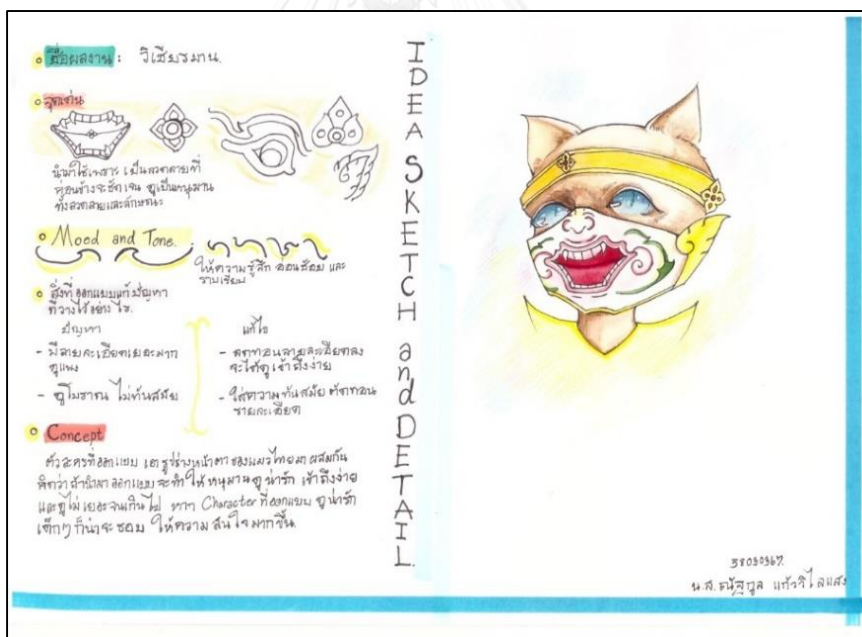 ชื่อผลงาน : วิเชียรมาน.
จุดเด่น
นำมาใช้เพราะ เป็นลวดลายที่
ค่อนข้างจะชัดเจน ดูเป็นหนุมาน
ทั้งลวดลายและลักษณะ
Mood and Tone.
ให้ความรู้สึก อ่อนช้อย และ
ราบเรียบ
สิ่งที่ออกแบบแก้ปัญหา
ที่วางไว้อย่างไร.
ปัญหา
- มีลายละเอียดเยอะมาก
ดูแพง
- ดูโบราณ ไม่ทันสมัย
แก้ไข
- ลดทอนลายละเอียดลง
จะได้ดูเข้าถึงง่าย
- ใส่ความทันสมัย ตัดทอน
รายละเอียด
Concept
ตัวละครที่ออกแบบ เอารูปร่างหน้าตาของแมวไทยมาผสมกัน
คิดว่าถ้านำมาออกแบบจะทำให้หนุมานดูน่ารัก เข้าถึงง่าย
และดูไม่เยอะจนเกินไป หาก Character ที่ออกแบบ ดูน่ารัก
เด็กๆ ก็น่าจะชอบ ให้ความสนใจมากขึ้น.
IDEA SKETCH and DETAIL.
58030367.
น.ส. แก้ววิไลแสง